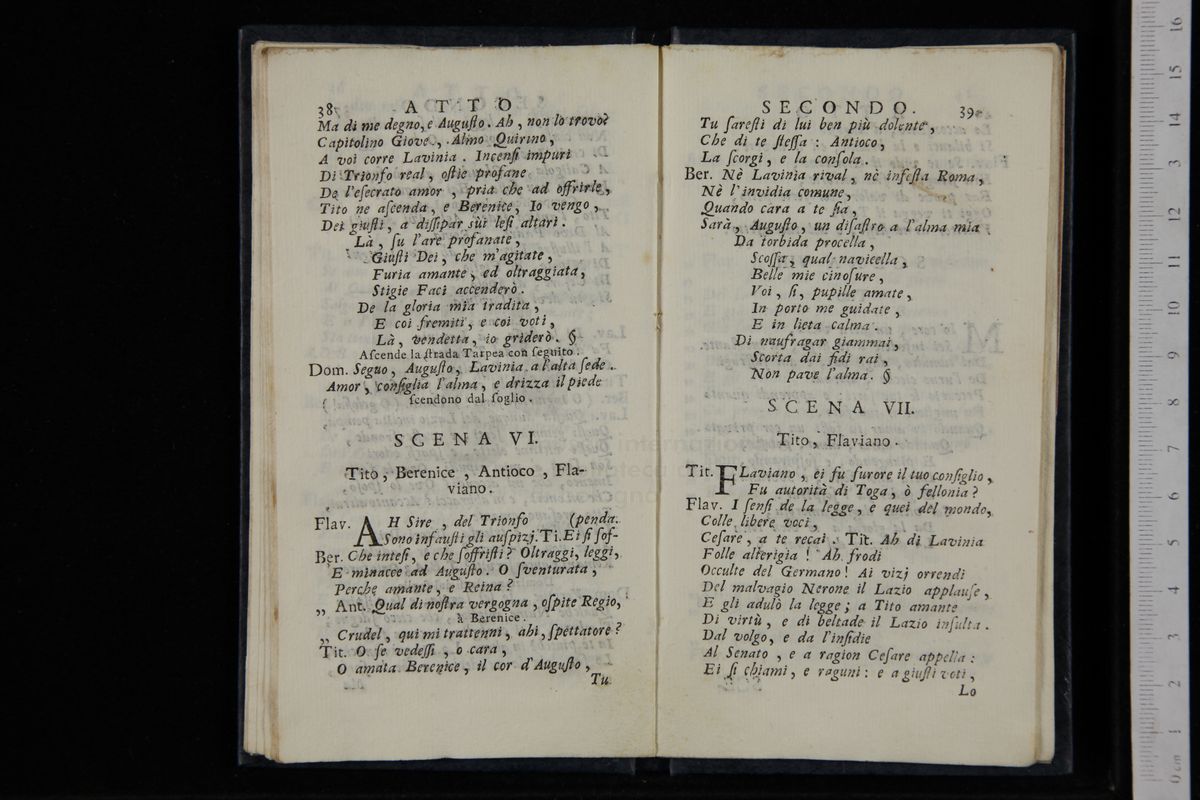 38 ATTO
Ma di me degno, e Auguſto. Ah, non lo trovo?
Capitolino Giove, Almo Quirino,
A voi corre Lavinia. Incenſi impuri
Di Trionfo real, oſtie profane
De l'eſecrato amor, pria che ad offrirle,
Tito ne aſcenda, e Berenice, Io vengo,
Dei giuſti, a diſſipar sùi leſi altari.
Là, ſu l'are profanate,
Giuſti Dei, che m'agitate,
Furia amante, ed oltraggiata,
Stigie Faci accenderò.
De la gloria mia tradita,
E coi fremiti, e coi voti,
Là, vendetta, io griderò. §
Aſcende la ſtrada Tarpea con ſeguito.
Dom. Seguo, Auguſto, Lavinia a l'alta ſede.
Amor, conſiglia l'alma, e drizza il piede
ſcendono dal ſoglio.
SCENA VI.
Tito, Berenice, Antioco, Fla-
viano.
Flav. AH Sire, del Trionfo (penda.
Sono infauſti gli auſpizj. Ti. Ei ſi ſoſ-
Ber. Che inteſi, e che ſoffriſti? Oltraggi, leggi,
E minacce ad Auguſto. O ſventurata,
Perche amante, e Reina?
„ Ant. Qual di noſtra vergogna, oſpite Regio,
à Berenice.
„ Crudel, qui mi trattenni, ahi, ſpettatore?
Tit. O ſe vedeſſi, o cara,
O amata Berenice, il cor d'Auguſto,
Tu
SECONDO. 39
Tu ſareſti di lui ben più dolente,
Che di te ſteſſa: Antioco,
La ſcorgi, e la conſola.
Ber. Nè Lavinia rival, nè infeſta Roma,
Nè l'invidia comune,
Quando cara a te ſia,
Sarà, Auguſto, un diſaſtro a l'alma mia
Da torbida procella,
Scoſſa, qual navicella,
Belle mie cinoſure,
Voi, ſi, pupille amate,
In porto me guidate,
E in lieta calma.
Di naufragar giammai,
Scorta dai fidi rai,
Non pave l'alma. §
SCENA VII.
Tito, Flaviano.
Tit. FLaviano, ei fu furore il tuo conſiglio,
Fu autorità di Toga, ò fellonia?
Flav. I ſenſi de la legge, e quei del mondo,
Colle libere voci,
Ceſare, a te recai. Tit. Ah di Lavinia
Folle alterigia! Ah frodi
Occulte del Germano! Ai vizj orrendi
Del malvagio Nerone il Lazio applauſe,
E gli adulò la legge; a Tito amante
Di virtù, e di beltade il Lazio inſulta.
Dal volgo, e da l'inſidie
Al Senato, e a ragion Ceſare appella:
Ei ſi chiami, e raguni: e a giuſti voti,
Lo